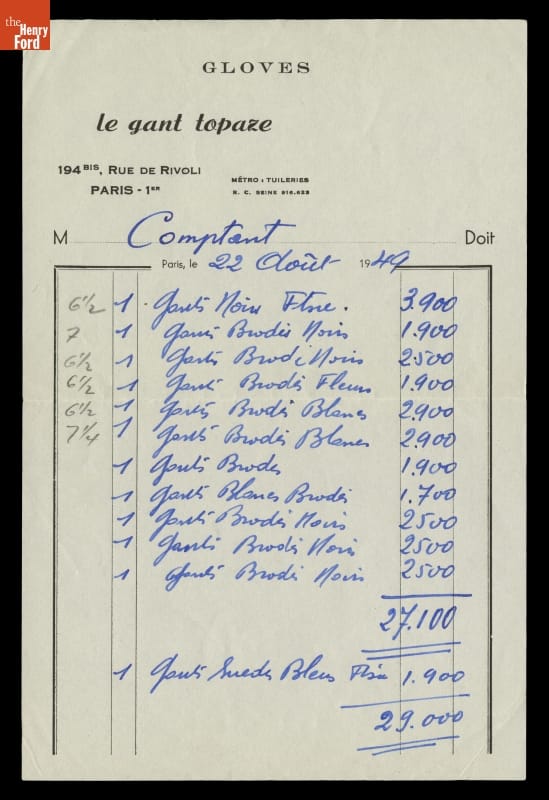 the
Henry
Ford
GLOVES
le gant topaze
194 BIS, RUE DE RIVOLI
PARIS - 1ER
MÉTRO : TUILERIES
R. C. SEINE 916.623
M Comptant Doit
Paris, le 22 Août 1949
6 1/2 1 Gants Noir 3.900
7 1 Gants Brodés Noirs 1.900
6 1/2 1 Gants Brodé Noirs 2.500
6 1/2 1 Gants Brodés Fleurs 1.900
6 1/2 1 Gants Brodés Blancs 2.900
7 1/4 1 Gants Brodés Blancs 2.900
1 Gants Brodés 1.900
1 Gants Blancs Brodés 1.700
1 Gants Brodés Noirs 2500
1 Gants Brodés Noirs 2500
1 Gants Brodés Noirs 2500
27.100
1 Gants Suedes Bleus 1.900
29.000